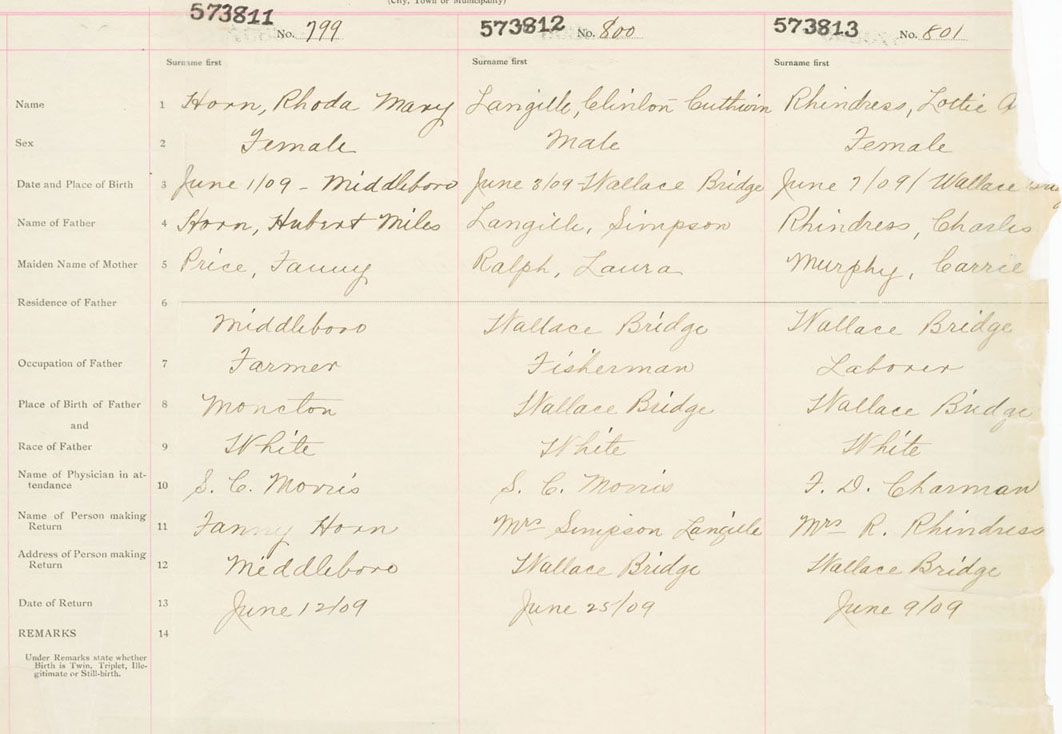 (City, Town or Municipality)
573811 No. 799 573812 No. 800 573813 No. 801
Surname first Surname first Surname first
Name 1 Horn, Rhoda Mary Langille, Clinton Rhindress, Lottie
Sex 2 Female Male Female
Date and Place of Birth 3 June 1/09 - Middleboro June 3/09 Wallace Bridge June 7/09 / Wallace
Name of Father 4 Horn, Hubert Miles Langille, Simpson Rhindress, Charles
Maiden Name of Mother 5 Price, Fanny Ralph, Laura Murphy, Carrie
Residence of Father 6
Middleboro Wallace Bridge Wallace Bridge
Occupation of Father 7 Farmer Fisherman Laborer
Place of Birth of Father 8 Moncton Wallace Bridge Wallace Bridge
and
Race of Father 9 White White White
Name of Physician in at-
tendance 10 S. C. Morris S. C. Morris F. D. Charman
Name of Person making
Return 11 Fanny Horn Mrs Simpson Langille Mrs R. Rhindress
Address of Person making
Return 12 Middleboro Wallace Bridge Wallace Bridge
Date of Return 13 June 12/09 June 25/09 June 9/09
REMARKS 14
Under Remarks state whether
Birth is Twin, Triplet, Ille-
gitimate or Still-birth.